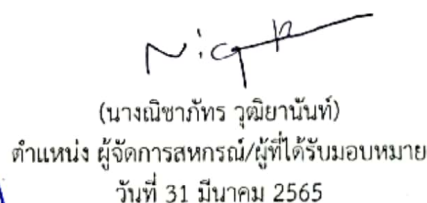 (นางณิชาภัทร วุฒิยานันท์)
ตำแหน่ง ผู้จัดการสหกรณ์/ผู้ที่ได้รับมอบหมาย
วันที่ 31 มีนาคม 2565